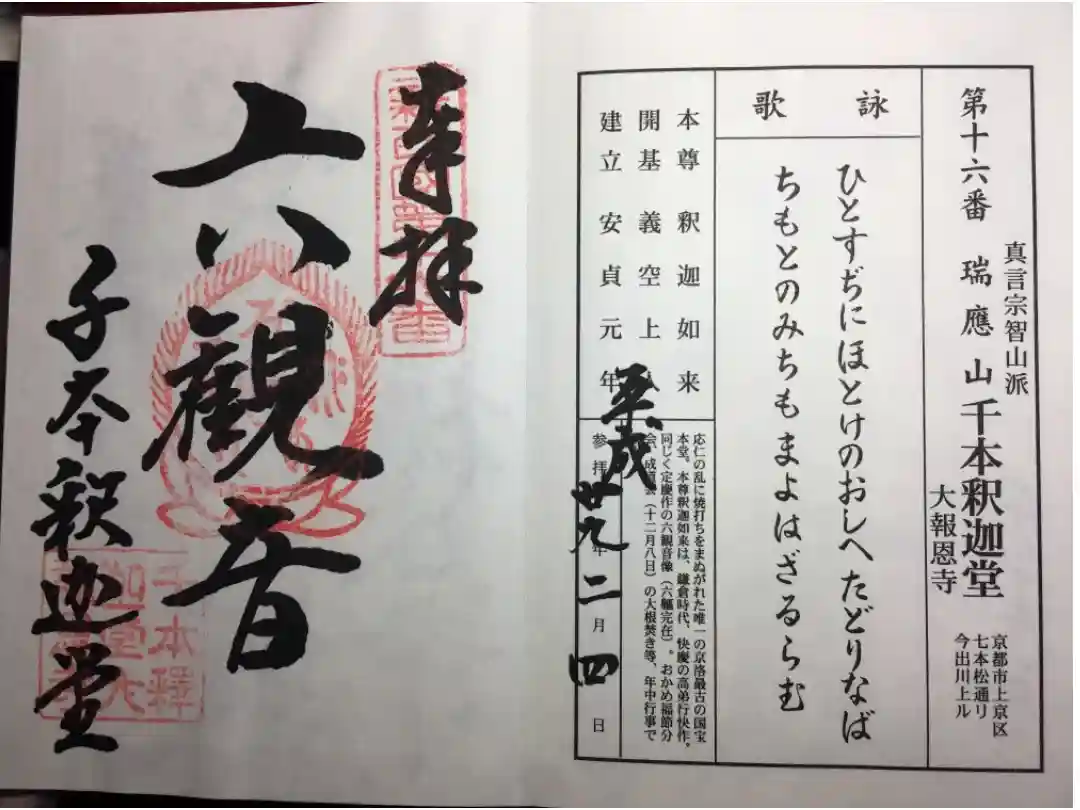 第十六番 瑞應山 千本釈迦堂
真言宗智山派
大報恩寺
京都市上京区
七本松通り
今出川上ル
詠歌
ひとすぢにほとけのおしへたどりなば
ちもとのみちもまよはざるらむ
本尊 釈迦如来
開基 義空上人
建立 安貞元年
応仁の乱に焼打ちをまぬがれた唯一の京洛最古の国宝
本堂。本尊釈迦如来は、鎌倉時代、快慶の高弟行快作。
同じく定慶作の六観音像(六軀完在)。おかめ福節分
会、成道会(十二月八日)の大根焚き等、年中行事で
参拝
平成廿九年二月四日
奉拝
六觀音
千本釈迦堂
千本釋
迦堂大